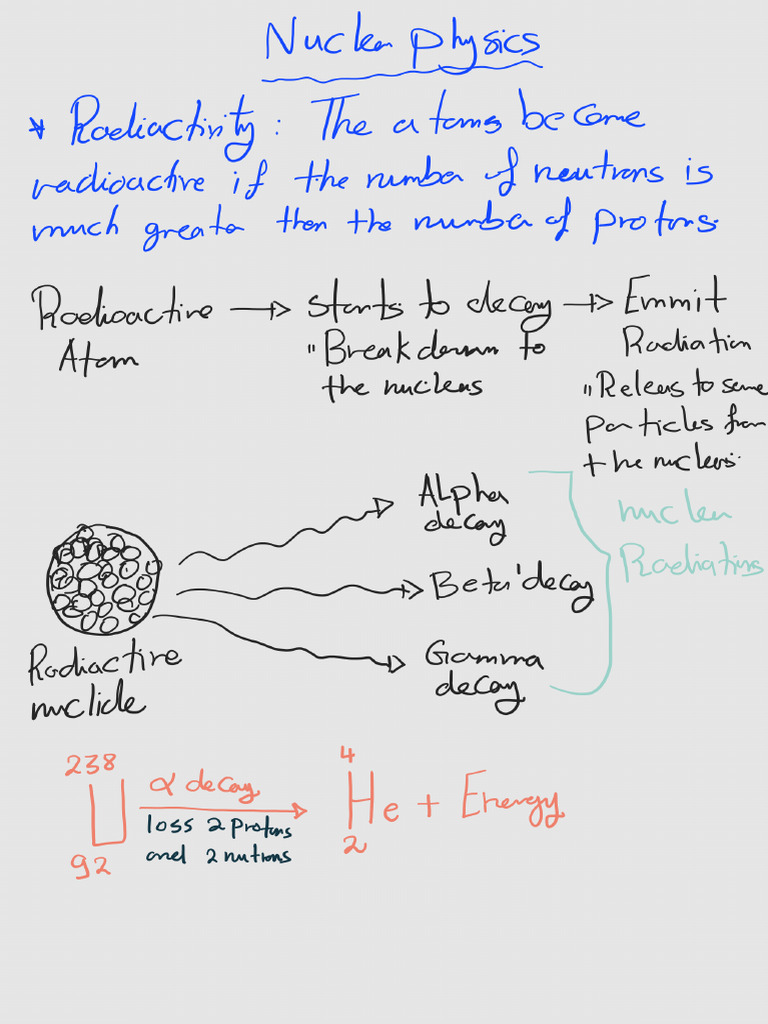 Nuclear physics
* Radiactivity : The atoms become
radioactive if the number of neutrons is
much greater then the number of protons.
Radioactive → starts to decay → Emmit
Atom "Breakdown to Radiation
the nucleus "Releas to some
particles from
the nucleus.
ALpha
decay
nuclear
Radiations
Beta decay
Gamma
decay
Radiactive
nuclide
238
92 U α decay → 4
2 He + Energy
loss 2 protons
and 2 nutrons